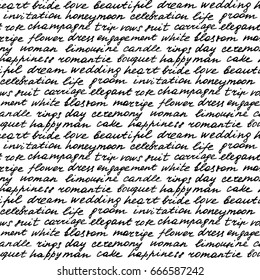 heart bride love beautiful dream wedding
invitation honeymoon celebration life groom
rok champagne trip vows suit carriage elegant
rrige flower dress engagement white blossom mar
ny woman limousine candle rings day ceremony
happiness romantic bouquet happy man cake
ful dream wedding heart bride love beautiful
celebration life groom invitation honeymoon
carriage elegant rok champagne trip vows suit
ment white blossom marrige flower dress engage
candle rings day ceremony woman limousine
bouquet happy man cake happiness romantic
heart bride love beautiful dream wedding
invitation honeymoon celebration life groom
rok champagne trip vows suit carriage elegant
rrige flower dress engagement white blossom mar
ny woman limousine candle rings day ceremony
happiness romantic bouquet happy man cake
ful dream wedding heart bride love beautiful
celebration life groom invitation honeymoon
carriage elegant rok champagne trip vows suit
ment white blossom marrige flower dress engage
candle rings day ceremony woman limousine
bouquet happy man cake happiness romantic
shutterstock.com · 666587242